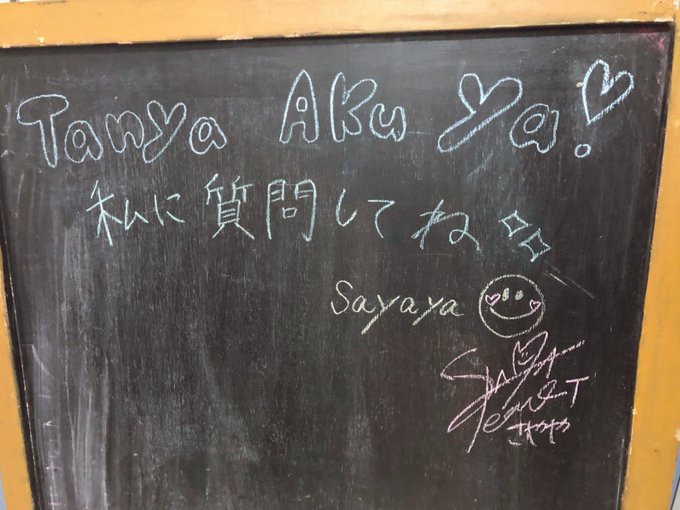 Tanya Aku Ya!
私に質問してね
Sayaya
Team T
さやや